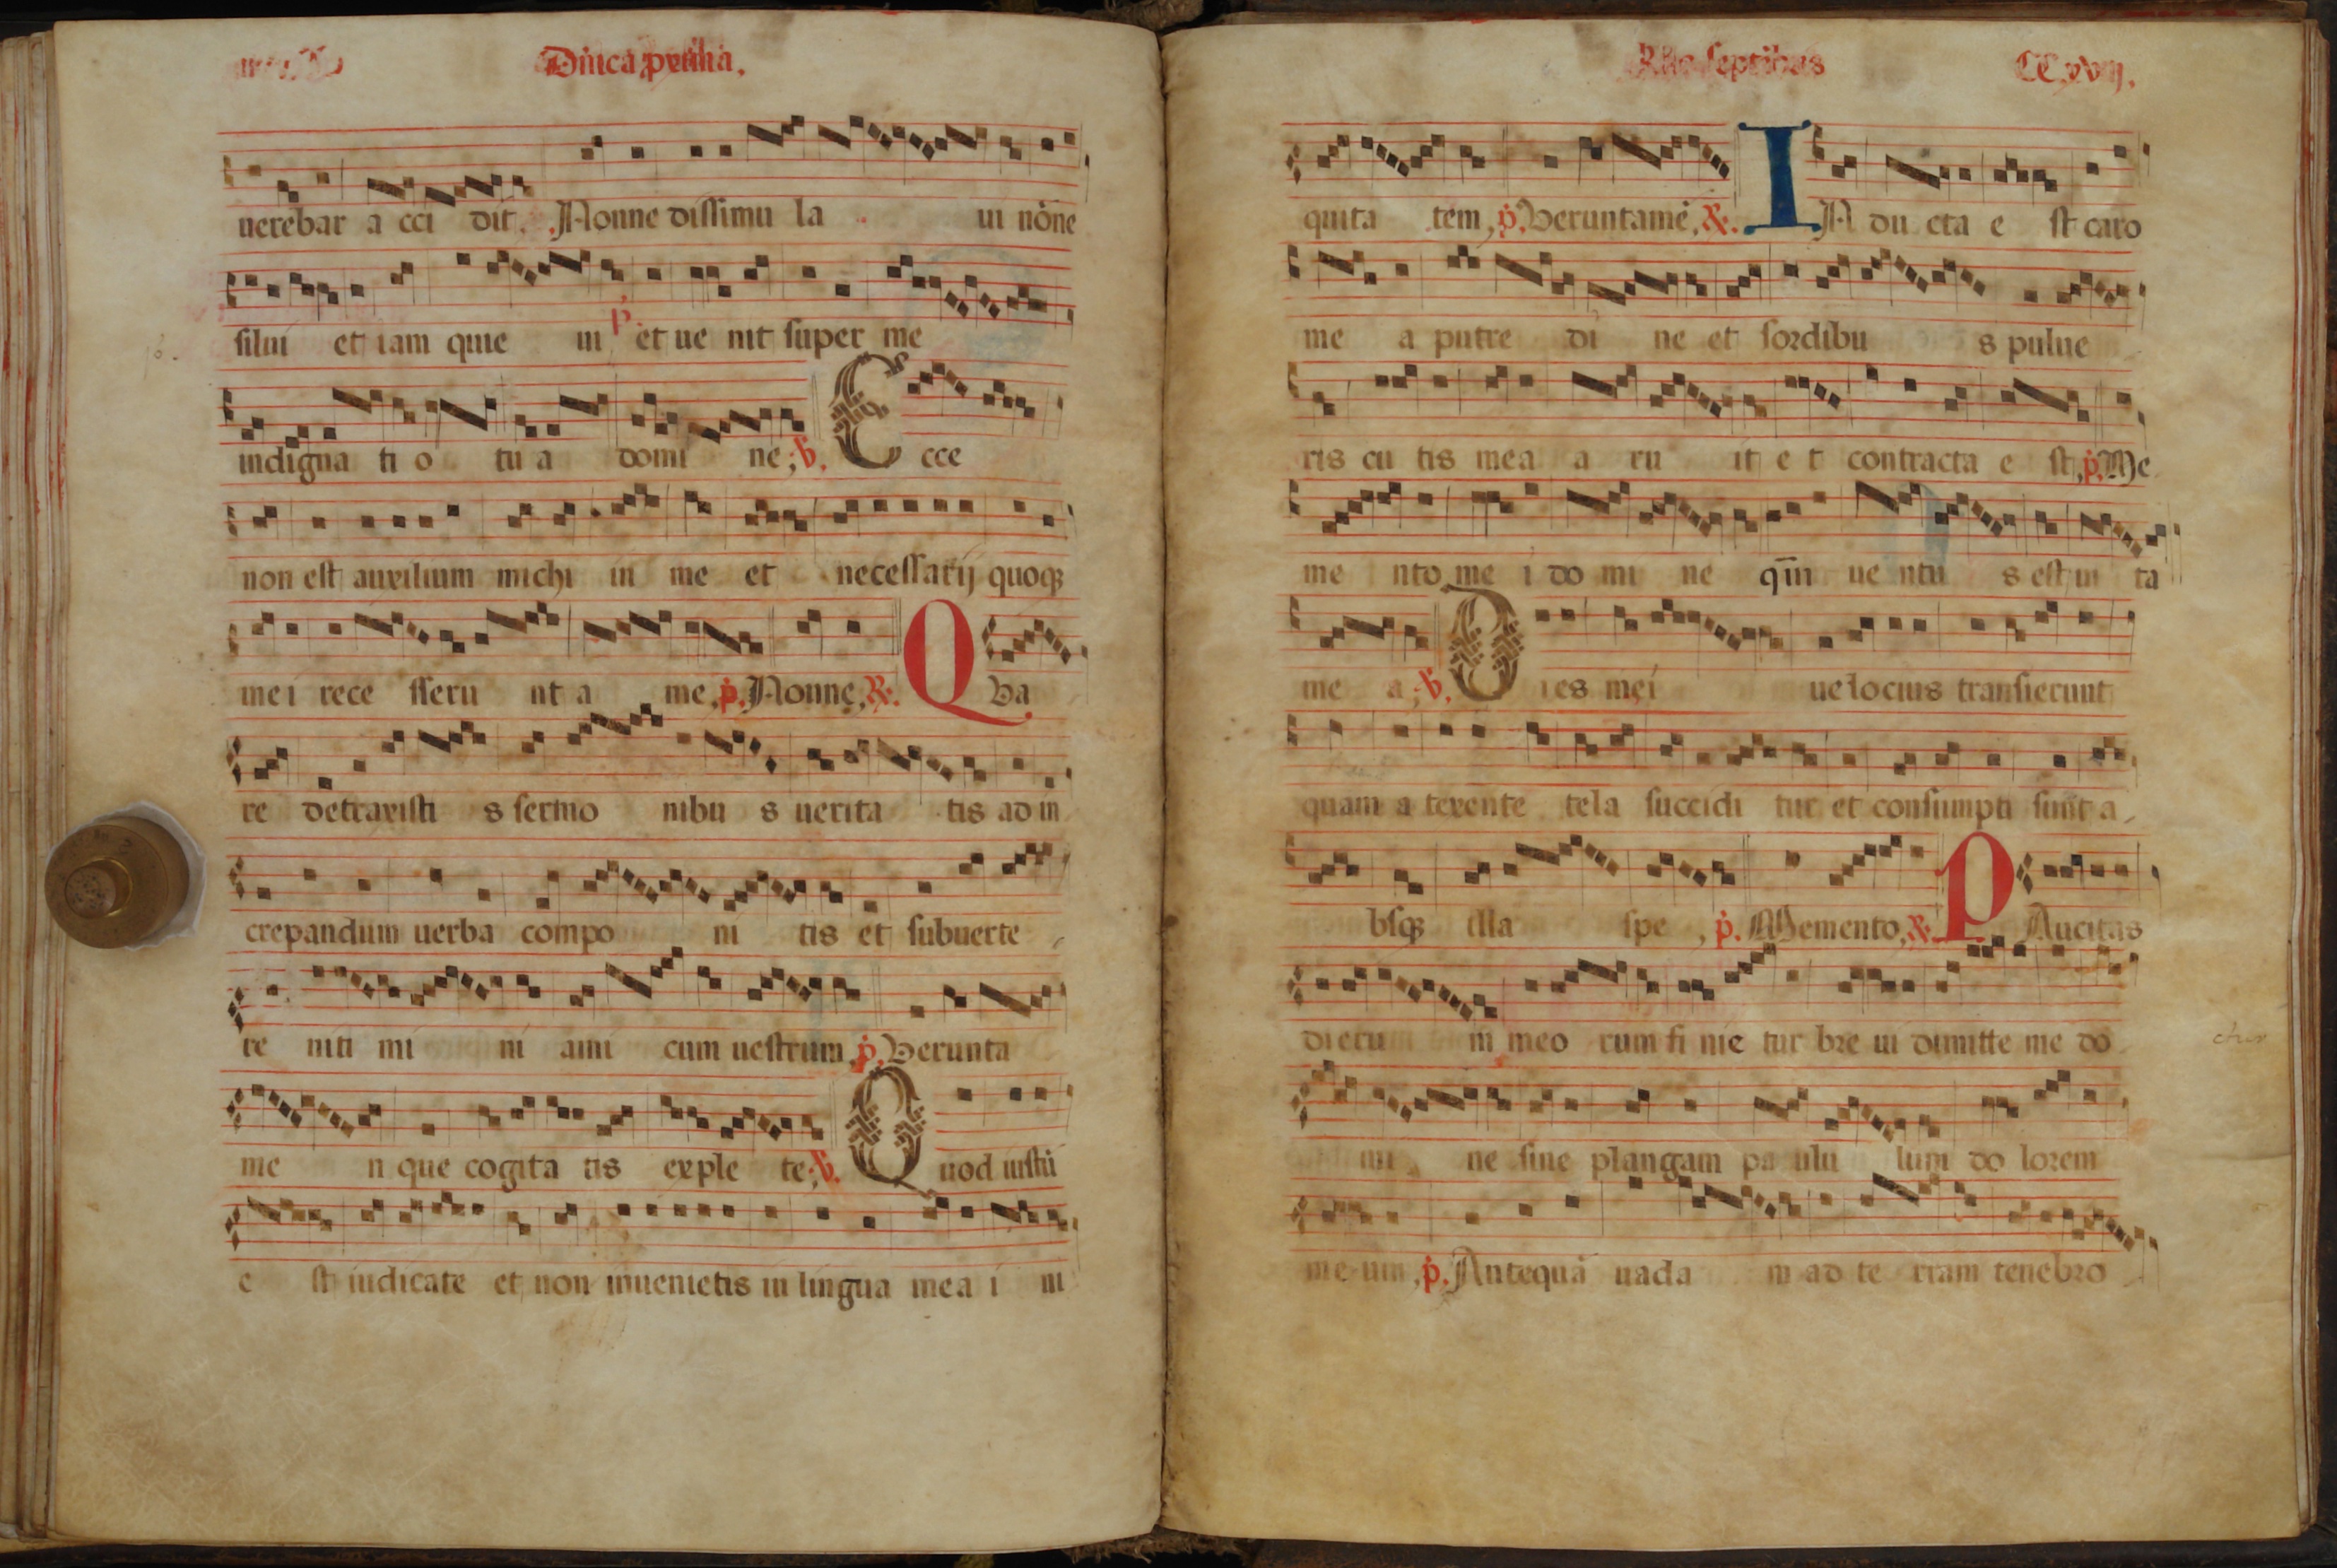 Dn̄ica prima.
uerebar a cci dit. Nonne dissimu la ui nōne
silui et iam quie ui p̄. et ue nit super me
indigna ti o tu a domi ne; v. E cce
non est auxilium michi in me et necessarij quoqȝ
me i rece sseru nt a me, p̄. Nonne, R. Q Va
re detraxisti s sermo nibu s uerita tis ad in
crepandum uerba compo ni tis et subuerte
re niti mi ni ami cum uestrum, p̄. Verunta
me n que cogita tis exple te; v. Q uod iustū
e st iudicate et non inuenietis in lingua mea i ni
septībris CCxvij.
quita tem, p̄. Veruntamē, R. I N du cta e st caro
me a putre di ne et sordibu s pulue
ris cu tis mea a ru it e t contracta e st, p̄. Me
me nto me i do mi ne qm̄ ue ntu s est ui ta
me a; v. D ies mei uelocius transierunt
quam a texente tela succidi tur et consumpti sunt a
bsqȝ illa spe, p̄. Memento, R. P Aucitas
dieru m meo rum fi nie tur bre ui dimitte me do
mi ne sine plangam pa ulu lum do lorem
me um, p̄. Antequā uada m ad te rram tenebro